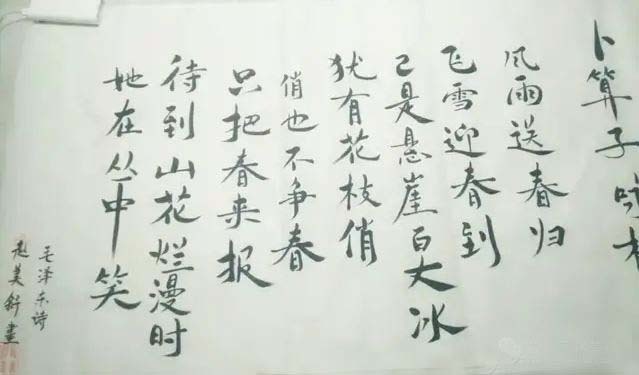 卜算子 咏梅
风雨送春归
飞雪迎春到
已是悬崖百丈冰
犹有花枝俏
俏也不争春
只把春来报
待到山花烂漫时
她在丛中笑
毛泽东诗